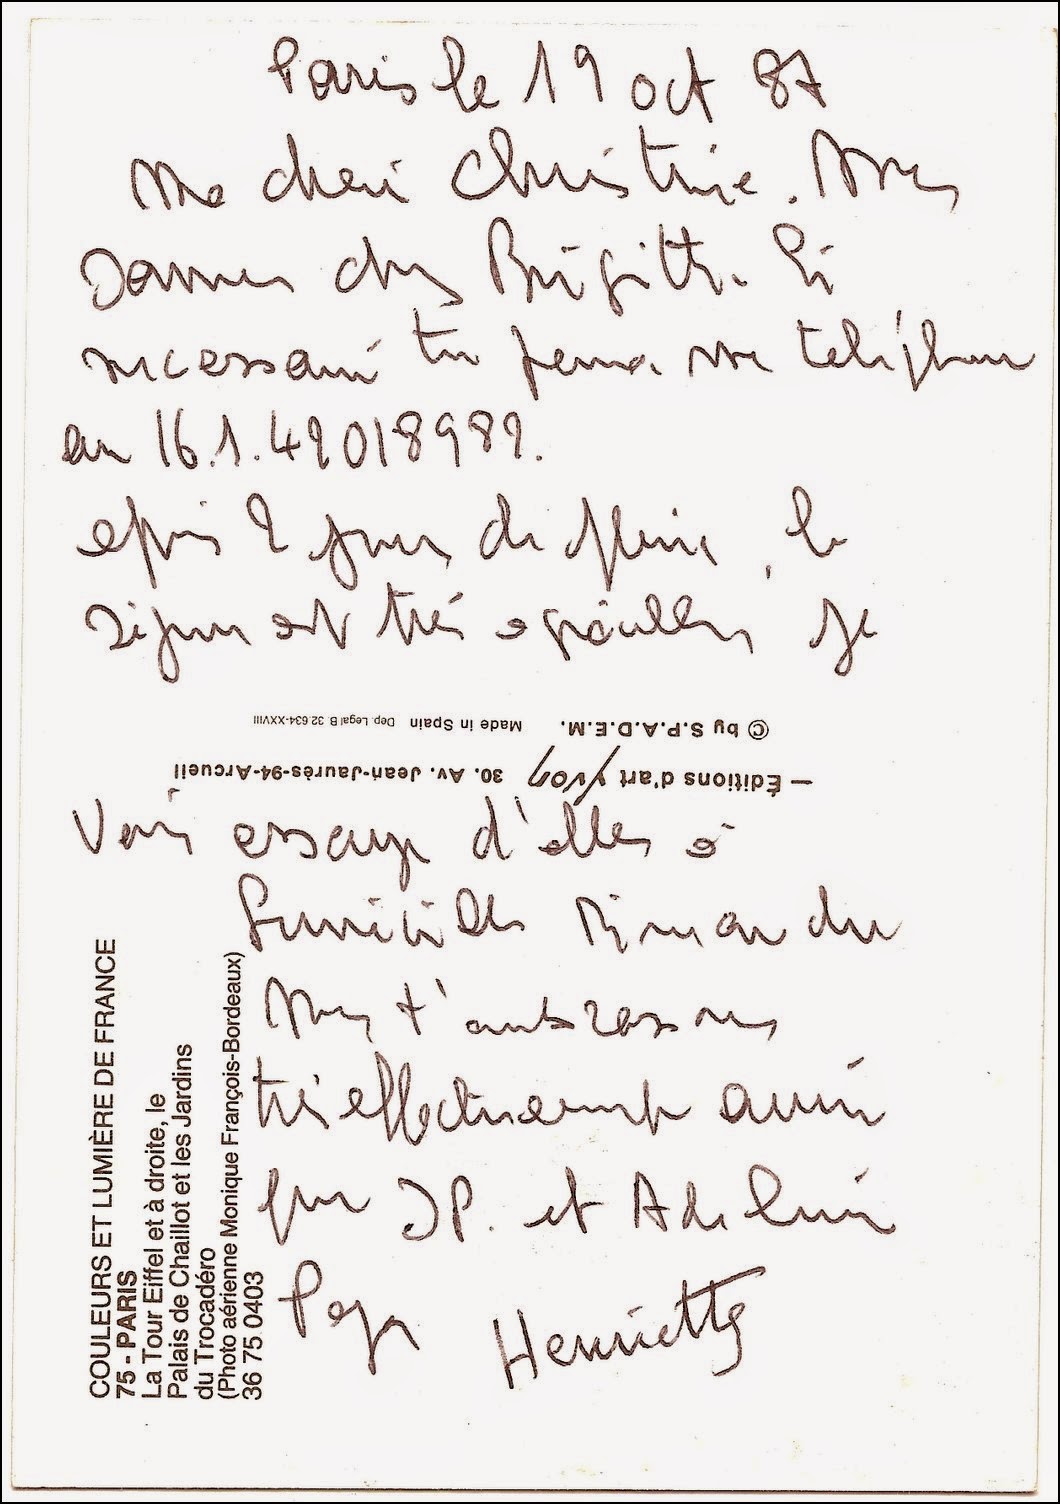 Paris le 19 oct 87
Ma cheri Christine. Nous
sommes chez Brigitte. Si
necessaire tu peux me telephoner
au 16.1.49018989.
epuis 2 jours de pluie, le
séjour est très
je
© by S.P.A.D.E.M. Made in Spain Dep. Legal B 32.634-XXVIII
— Éditions d'art Yvon 30. Av. Jean-Jaurès-94-Arcueil
Vais d'aller à
Nous t'embrassons
très affectueusement ainsi
que JP. et Adeline
Henriette
COULEURS ET LUMIÈRE DE FRANCE
75 - PARIS
La Tour Eiffel et à droite, le
Palais de Chaillot et les Jardins
du Trocadéro
(Photo aérienne Monique François-Bordeaux)
36 75 0403